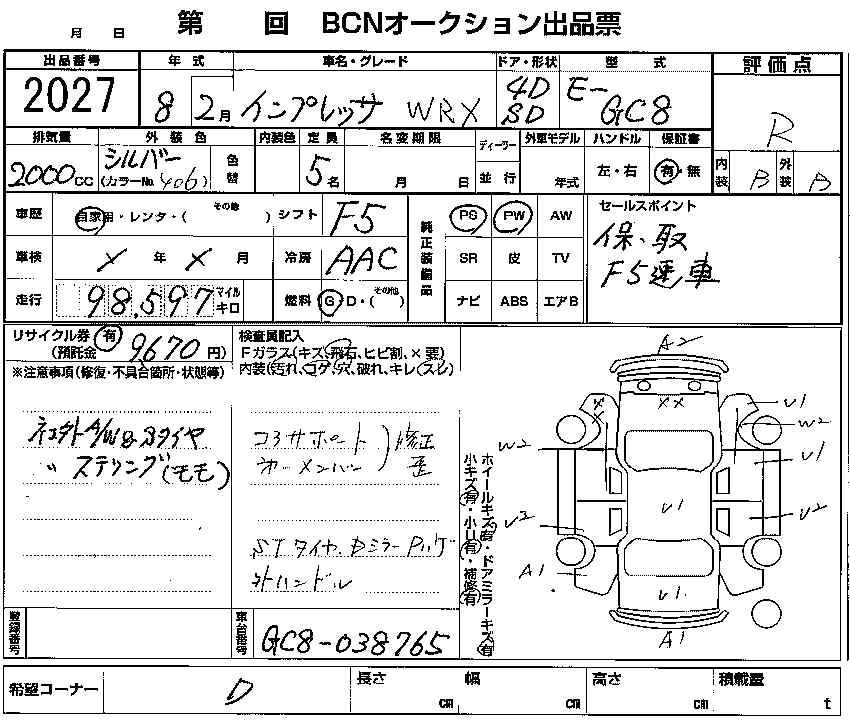 月 日 第 回 BCNオークション出品票
出品番号 年式 車名・グレード ドア・形状 型式 評価点
2027 8 2月 インプレッサ WRX 4D SD E-GC8 R
排気量 外装色 内装色 定員 名変期限 ディーラー 外車モデル ハンドル 保証書
2000cc シルバー (カラーNo. 406) 色替 5名 月 日 並行 年式 左・右 有・無 内装 B 外装 B
車歴 自家用・レンタ・(その他 ) シフト F5 純正装備品 PS PW AW セールスポイント
車検 X 年 X 月 冷房 AAC SR 皮 TV 保、取
走行 98,597 マイル キロ 燃料 G D・(その他) ナビ ABS エアB F5速車
リサイクル券 有 (預託金 9670 円) 検査員記入
Fガラス(キズ、飛石、ヒビ割、×要)
※注意事項(修復・不具合箇所・状態等) 内装(汚れ、コゲ、穴、破れ、キレ(スレ)
A2
XX
U1
W2
W2
U1
U1
U2
U2
A1
U1
A1
ステリング(モモ)
コアサポート 修正
カーメンバー 歪
STタイヤ、Dミラー
外ハンドル
ホイールキズ有・ドアミラーキズ有
小キズ有・小U有・補修有
登録番号 車台番号 GC8-038765
希望コーナー D 長さ cm 幅 cm 高さ cm 積載量 t